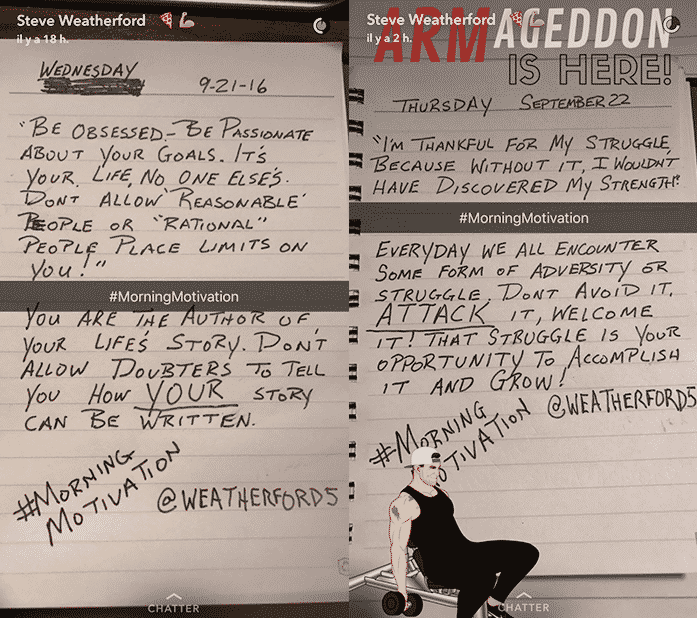 Steve Weatherford
il y a 18 h.
WEDNESDAY
9-21-16
"BE OBSESSED - BE PASSIONATE
ABOUT YOUR GOALS. IT'S
YOUR LIFE, NO ONE ELSE'S.
DONT ALLOW 'REASONABLE'
PEOPLE OR "RATIONAL"
PEOPLE PLACE LIMITS ON
YOU!"
#MorningMotivation
YOU ARE THE AUTHOR OF
YOUR LIFE'S STORY. DONT
ALLOW DOUBTERS TO TELL
YOU HOW YOUR STORY
CAN BE WRITTEN.
#MORNING
MOTIVATION
@WEATHERFORD5
CHATTER
Steve Weatherford
il y a 2 h.
ARMAGEDDON
IS HERE!
THURSDAY SEPTEMBER 22
"I'M THANKFUL FOR MY STRUGGLE,
BECAUSE WITHOUT IT, I WOULDN'T
HAVE DISCOVERED MY STRENGTH."
#MorningMotivation
EVERYDAY WE ALL ENCOUNTER
SOME FORM OF ADVERSITY OR
STRUGGLE. DONT AVOID IT,
ATTACK IT, WELCOME
IT! THAT STRUGGLE IS YOUR
OPPORTUNITY TO ACCOMPLISH
IT AND GROW!
@WEATHERFORD5
#MORNING
MOTIVATION
CHATTER